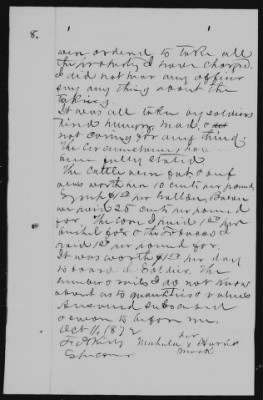 8.
were ordered to take all
the property I have charged.
I did not hear any officer
say any thing about the
taking.
It was all taken by soldiers
tired hungry, mad, &
not caring for any thing.
The circumstances have
been fully stated
The Cattle were fat, & our
were worth 10 cents per pound,
Syrup $1 per gallon, Bacon
we paid 25 cents per pound
for. The corn I paid $1 per
bushel for & the Tobacco I
paid $1 per pound for.
It was worth $1 per day
to board a soldier. The
number I do not know
about as to quantities & values
Answered subscribed
& sworn to before me
Oct 11, 1872
her
Mahala x
mark